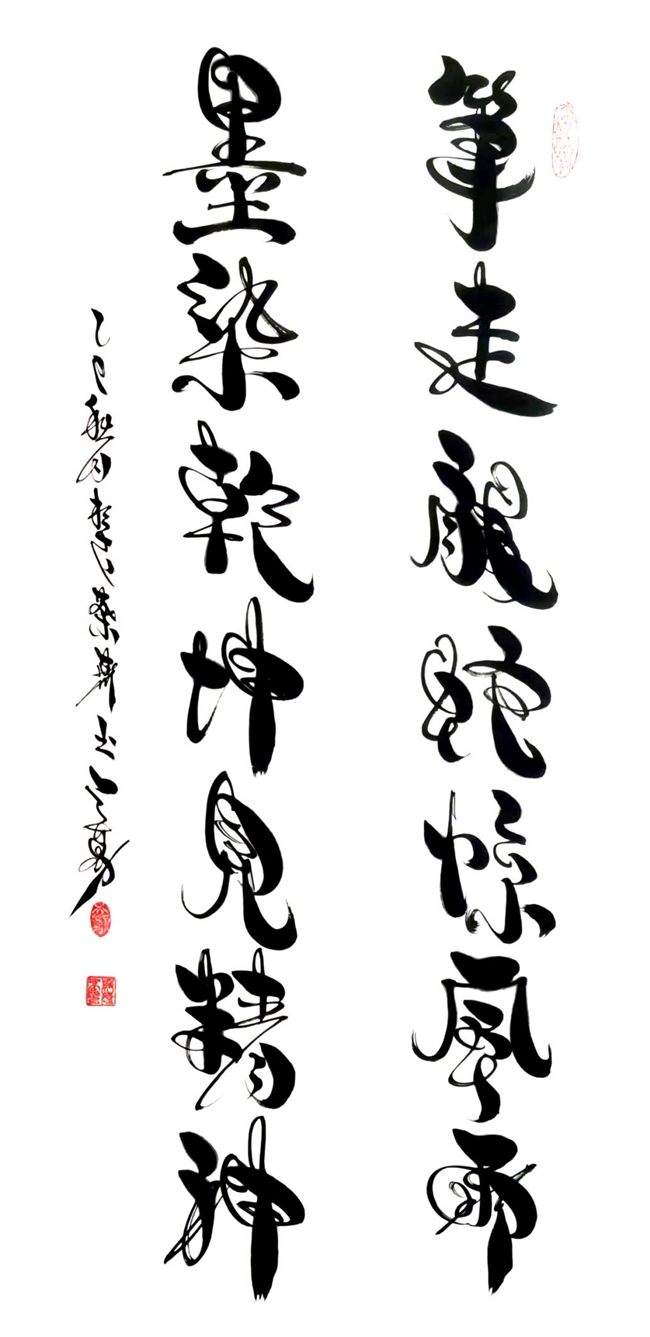 筆走龍蛇惊風雨
墨染乾坤見精神
乙巳秋月